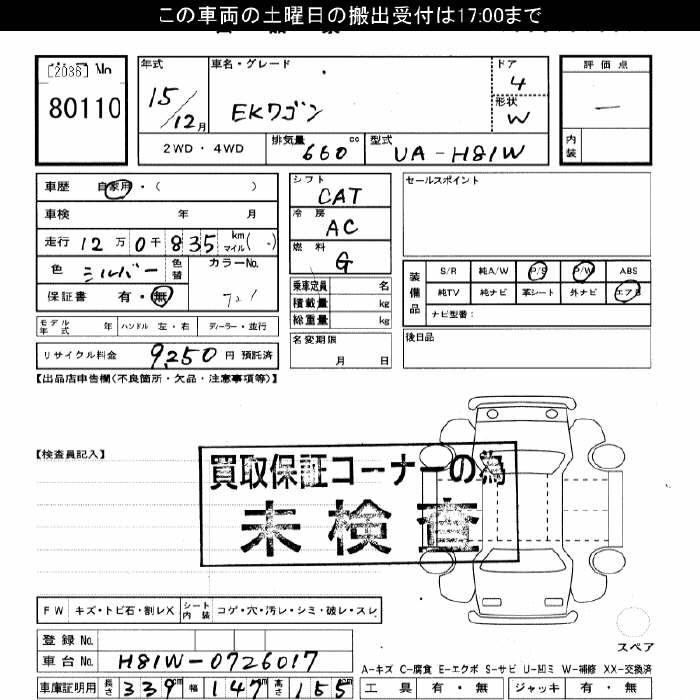 この車両の土曜日の搬出受付は17:00まで
[2036] No
80110
年式 15/12月
車名・グレード EKワゴン
ドア 4
形状 W
評価点 —
内装
2WD・4WD
排気量 660 cc
型式 UA-H81W
車歴 自家用・( )
車検 年 月
走行 12万0千835 km マイル( )
色 シルバー 色替
カラーNo.
保証書 有・無
モデル年式 年 ハンドル 左・右 ディーラー・並行
リサイクル料金 9,250 円 預託済
シフト CAT
冷房 AC
燃料 G
乗車定員 名
積載量 kg
総重量 kg
名変期限 月 日
セールスポイント
装備品 S/R 純A/W P/S P/W ABS
純TV 純ナビ 革シート 外ナビ エアB
ナビ型番:
後日品
【出品店申告欄(不良箇所・欠品・注意事項等)】
【検査員記入】
買取保証コーナーの為
未検査
FW キズ・トビ石・割レX シート内装 コゲ・穴・汚レ・シミ・破レ・スレ
登録No.
車台No. H81W-0726017
車庫証明用 長さ 339cm 幅 147cm 高さ 155cm
スペア
A-キズ C-腐食 E-エクボ S-サビ U-凹ミ W-補修 XX-交換済
工具 有・無 ジャッキ 有・無